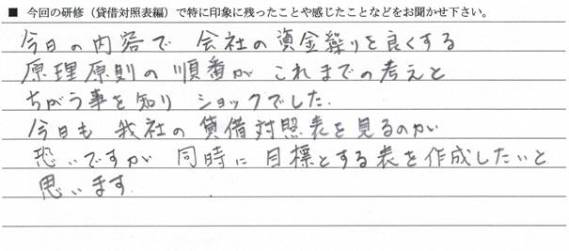 ■ 今回の研修（貸借対照表編）で特に印象に残ったことや感じたことなどをお聞かせ下さい。
今日の内容で 会社の資金繰りを良くする
原理原則の順番が これまでの考えと
ちがう事を知り ショックでした.
今日も 我社の貸借対照表を見るのが
恐いですが 同時に目標とする表を作成したいと
思います.